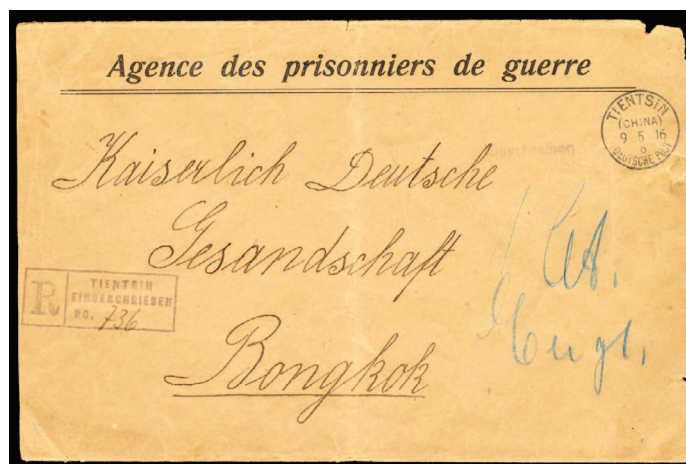 Agence des prisonniers de guerre
TIENTSIN
(CHINA)
9 5 16
DEUTSCHE POST
Kaiserlich Deutsche
Gesandschaft
Bongkok
R
TIENTSIN
EINGESCHRIEBEN
NO. 736